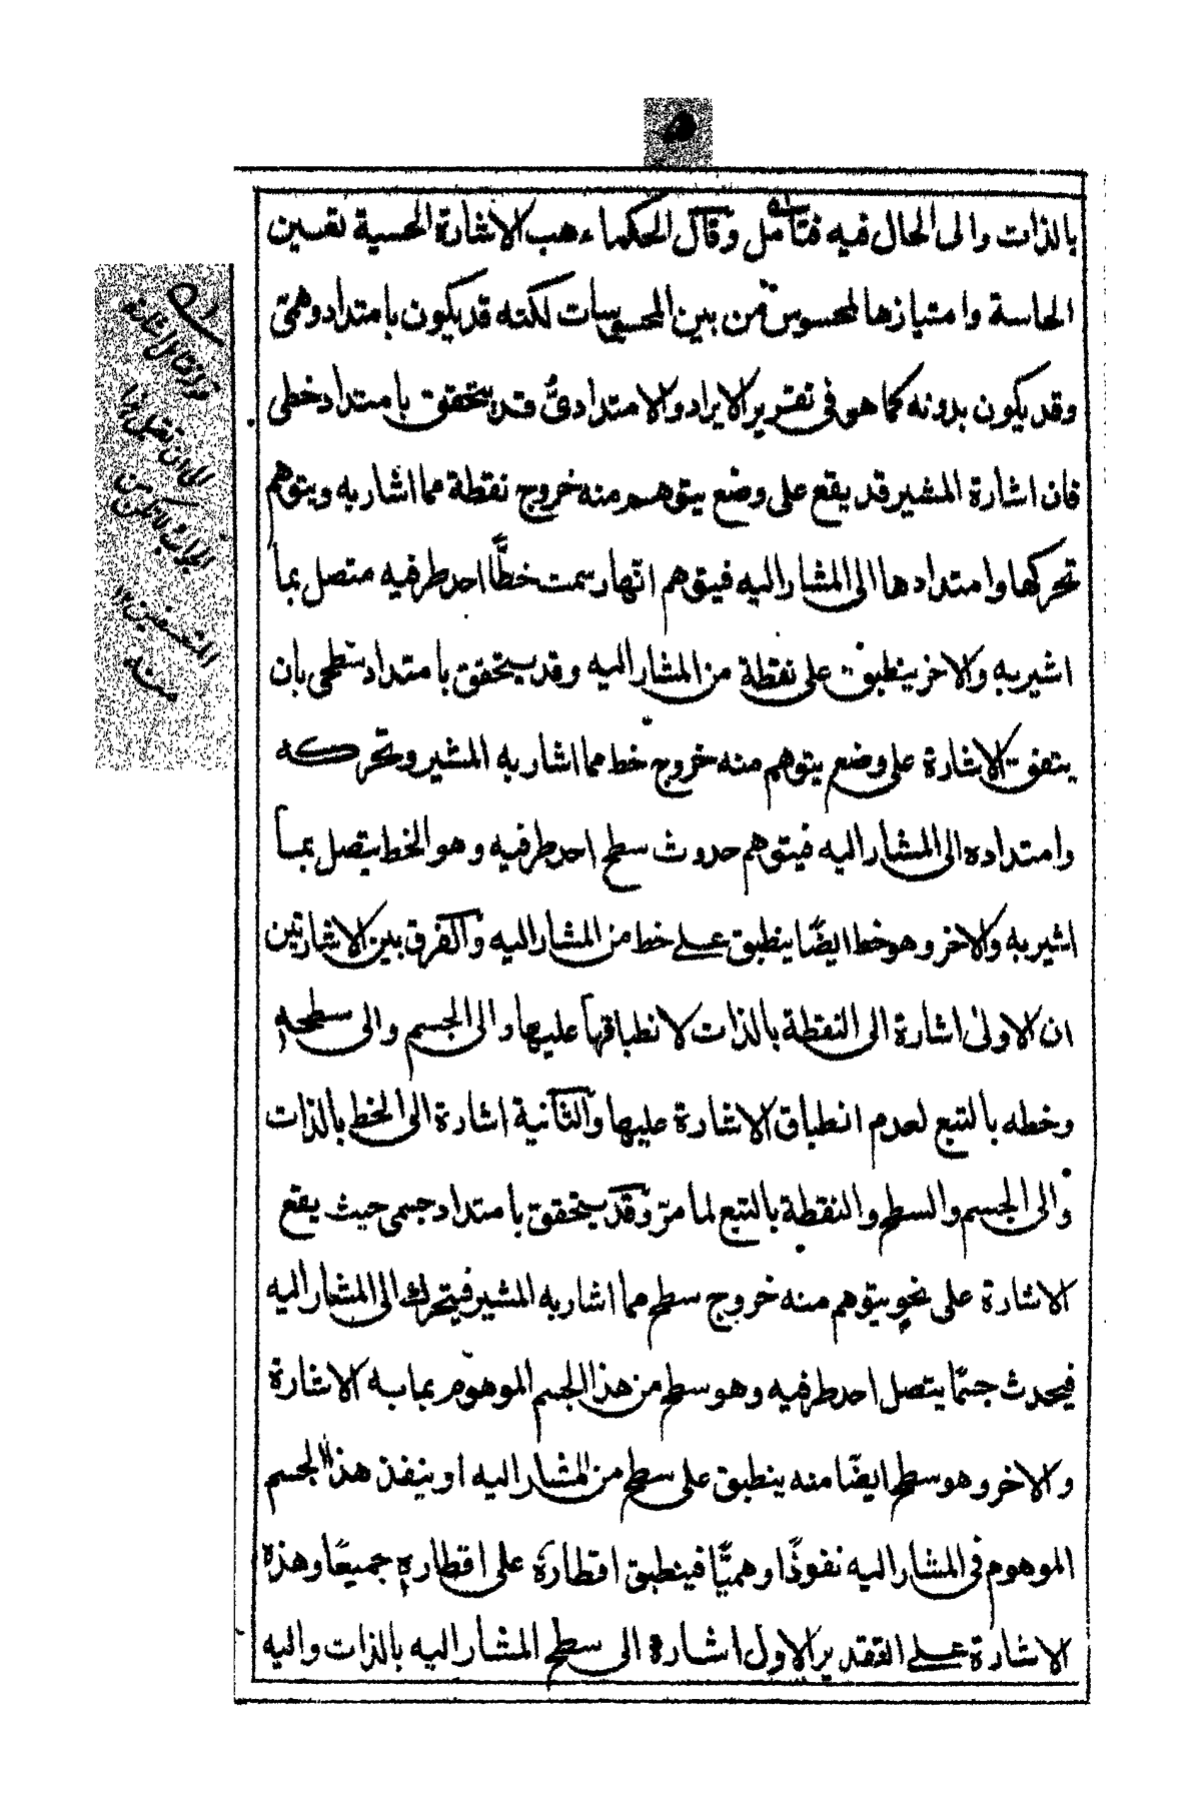 ٥
بالذات والى الحال فيه فتأمل وقال الحكماء هب الاشارة الحسية تعيين
الحاسة وامتيازها لمحسوس من بين المحسوسات لكنه قد يكون بامتداد وهمي
وقد يكون بدونه كما هو في تقرير الايراد والامتدادىّ قد يتحقق بامتداد خطى
فان اشارة المشير قد يقع على وضع يتوهم منه خروج نقطة مما اشار به ويتوهم
تحركها وامتدادها الى المشار اليه فيتوهم انّها رسمت خطًّا احد طرفيه متصل بما
اشير به والاخر ينطبق على نقطة من المشار اليه وقد يتحقق بامتداد سطحى بان
يتفق الاشارة على وضع يتوهم منه خروج خط مما اشار به المشير وتحركه
وامتداده الى المشار اليه فيتوهم حدوث سطح احد طرفيه وهو الخط يتصل بما
اشير به والاخر وهو خط ايضًا ينطبق على خط من المشار اليه والفرق بين الاشارتين
ان الاولى اشارة الى النقطة بالذات لانطباقها عليها والى الجسم والى سطحه
وخطه بالتبع لعدم انطباق الاشارة عليها والثانية اشارة الى الخط بالذات
والى الجسم والسطح والنقطة بالتبع لما مرّ وقد يتحقق بامتداد جسمى حيث يقع
الاشارة على نحو يتوهم منه خروج سطح مما اشار به المشير فيتحرك الى المشار اليه
فيحدث جسمًا يتصل احد طرفيه وهو سطح من هذا الجسم الموهوم بما به الاشارة
والاخر وهو سطح ايضًا منه ينطبق على سطح من المشار اليه او ينفذ هذا الجسم
الموهوم في المشار اليه نفوذًا وهميًّا فينطبق اقطاره على اقطاره جميعًا وهذه
الاشارة على التقدير الاول اشارة الى سطح المشار اليه بالذات واليه
قوله فتأمل اشارة
الى ان
منه